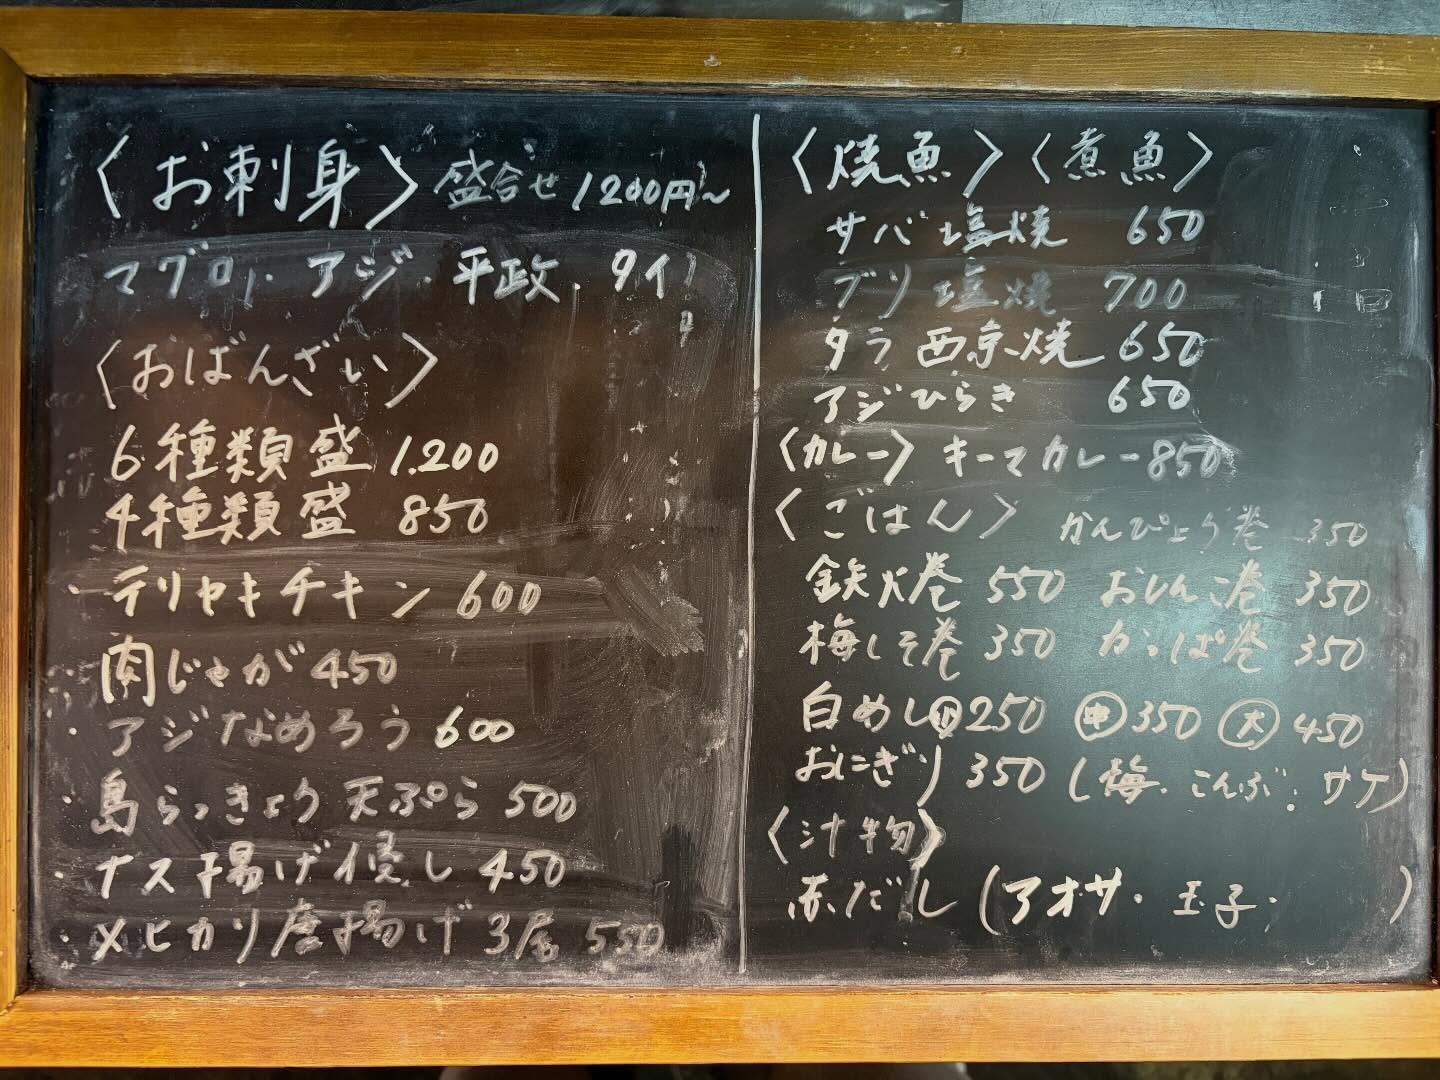 〈お刺身〉盛合せ 1200円～
マグロ・アジ・平政・タイ
〈おばんざい〉
6種類盛 1.200
4種類盛 850
・テリヤキチキン 600
・肉じゃが 450
・アジなめろう 600
・島らっきょう天ぷら 500
・ナス揚げ浸し 450
・メヒカリ唐揚げ3尾 550
〈焼魚〉〈煮魚〉
サバ塩焼 650
ブリ塩焼 700
タラ西京焼 650
アジひらき 650
〈カレー〉キーマカレー 850
〈ごはん〉 かんぴょう巻 350
鉄火巻 550 おしんこ巻 350
梅しそ巻 350 かっぱ巻 350
白めし㊙小250 ㊥350 (大) 450
おにぎり 350 (梅・こんぶ・サケ)
〈汁物〉
赤だし (アオサ・玉子・ )